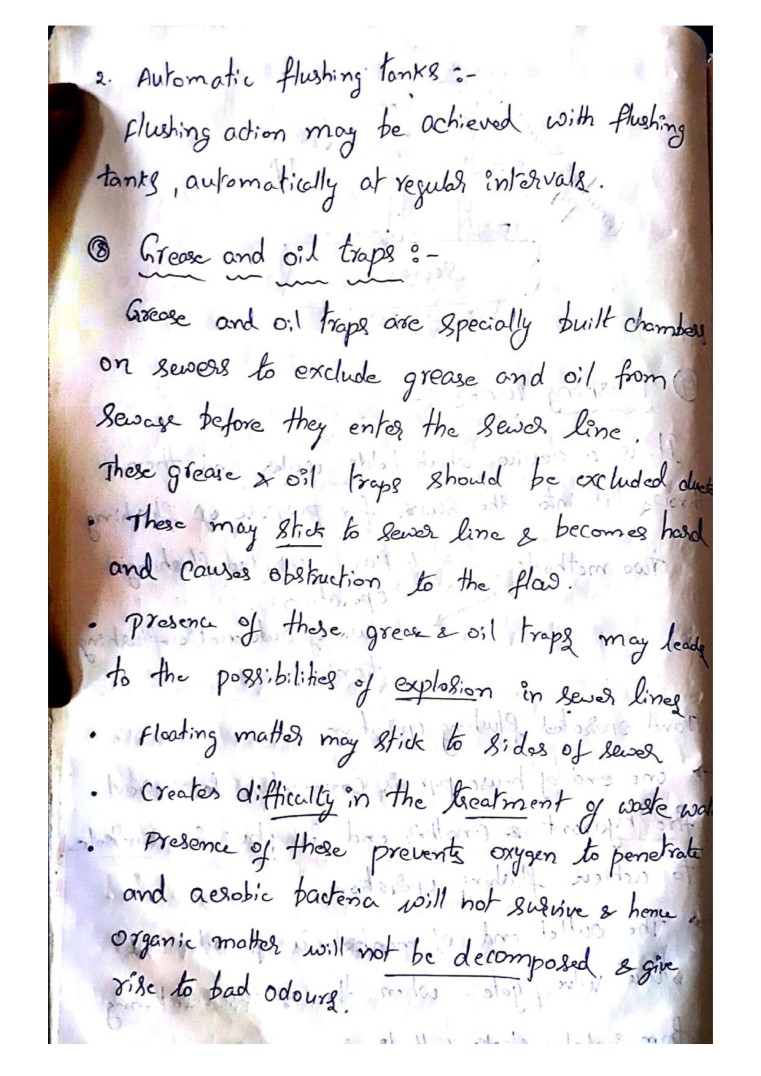 2. Automatic flushing tanks :-
flushing action may be achieved with flushing
tanks, automatically at regular intervals.
⑧ Grease and oil traps :-
Grease and oil traps are specially built chambers
on sewers to exclude grease and oil from
sewage before they enter the sewer line.
These grease & oil traps should be excluded due to
• These may stick to sewer line & becomes hard
and causes obstruction to the flow.
• presence of these grease & oil traps may leads
to the possibilities of explosion in sewer lines.
• floating matter may stick to sides of sewer
• Creates difficulty in the treatment of waste wat
• Presence of these prevents oxygen to penetrate
and aerobic bacteria will not survive & hence
organic matter will not be decomposed & give
rise to bad odours.